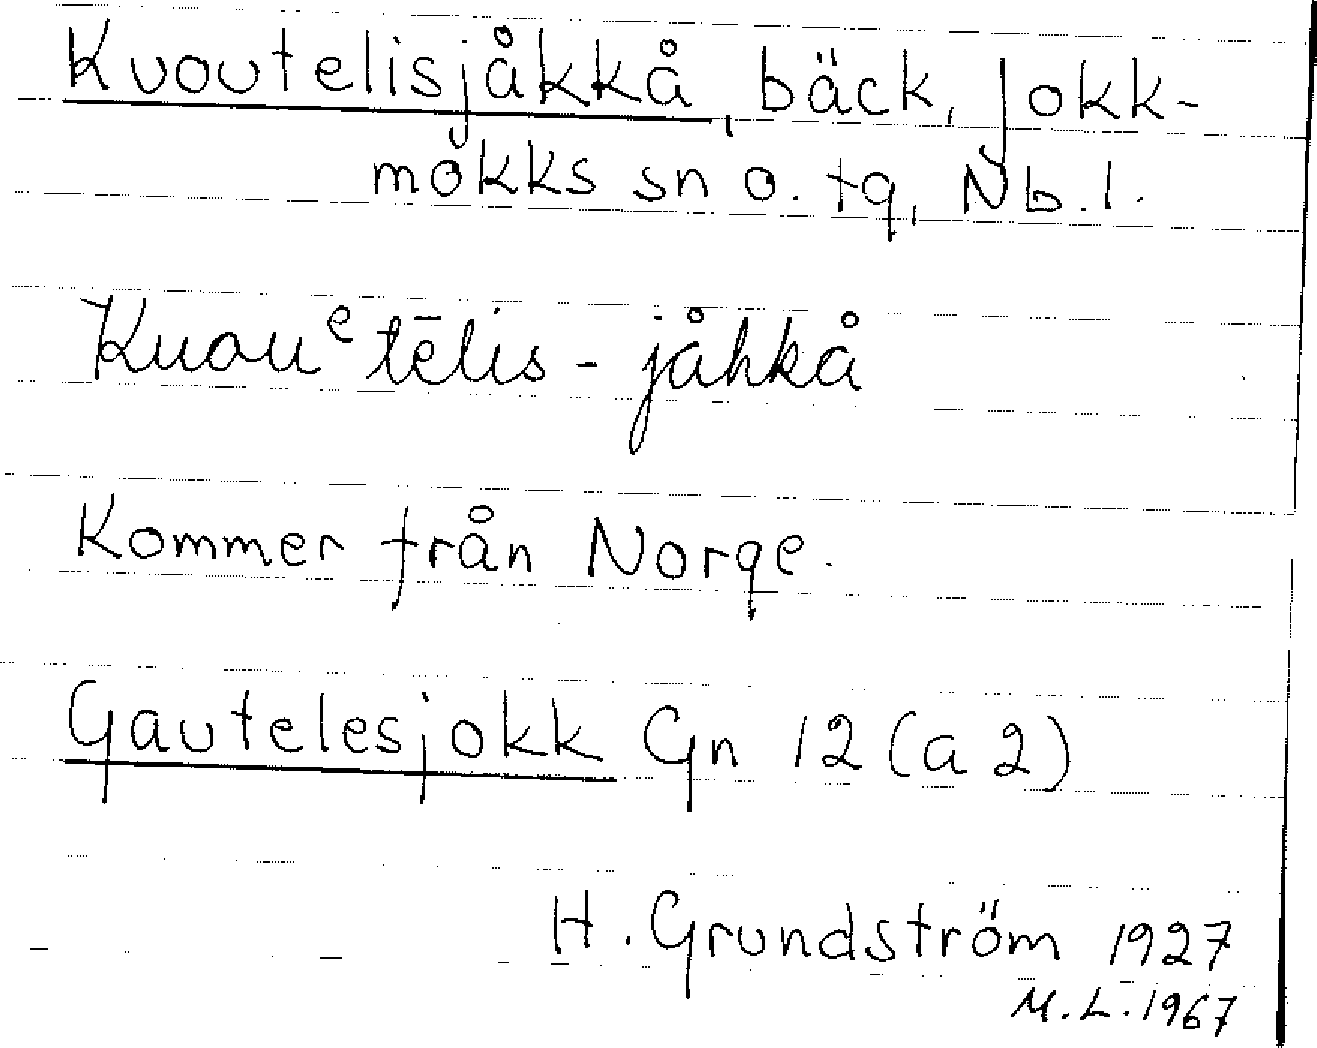 Kuoutelisjåkkå, bäck, Jokk-
mokks sn o. tg, Nb. l.
Kuouᵉtēlis-jåhkå
Kommer från Norge.
Gautelesjokk Gn 12 (a 2)
H. Grundström 1927
M.L. 1967